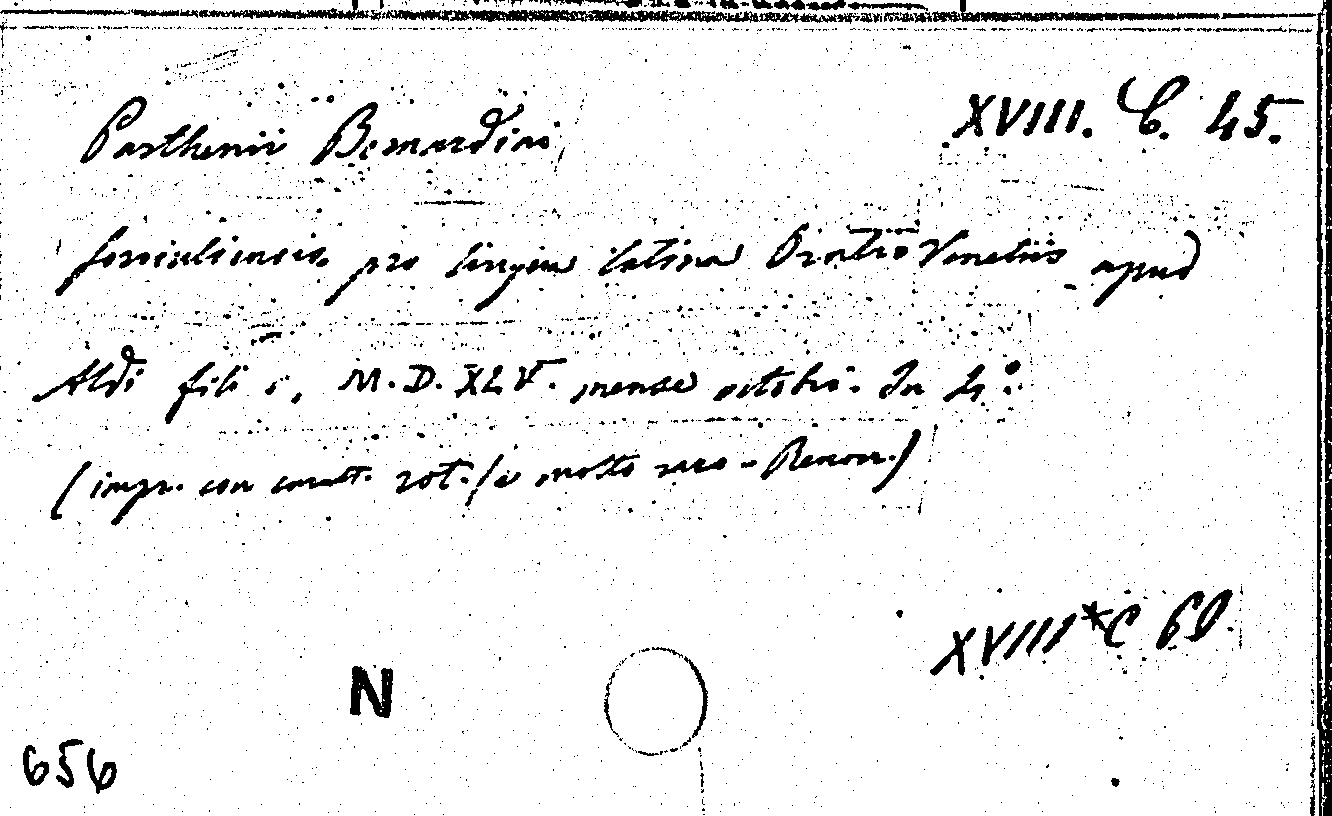 XVIII. C. 45.
Parthenii Bernardini
foroiuliensis pro lingua latina Oratio Venetiis apud
Aldi filios, M.D.XLV. mense octobri. In 4°.
(impr. con caratt. rot. / è molto raro - Renou.)
XVIII* C 60
N
656